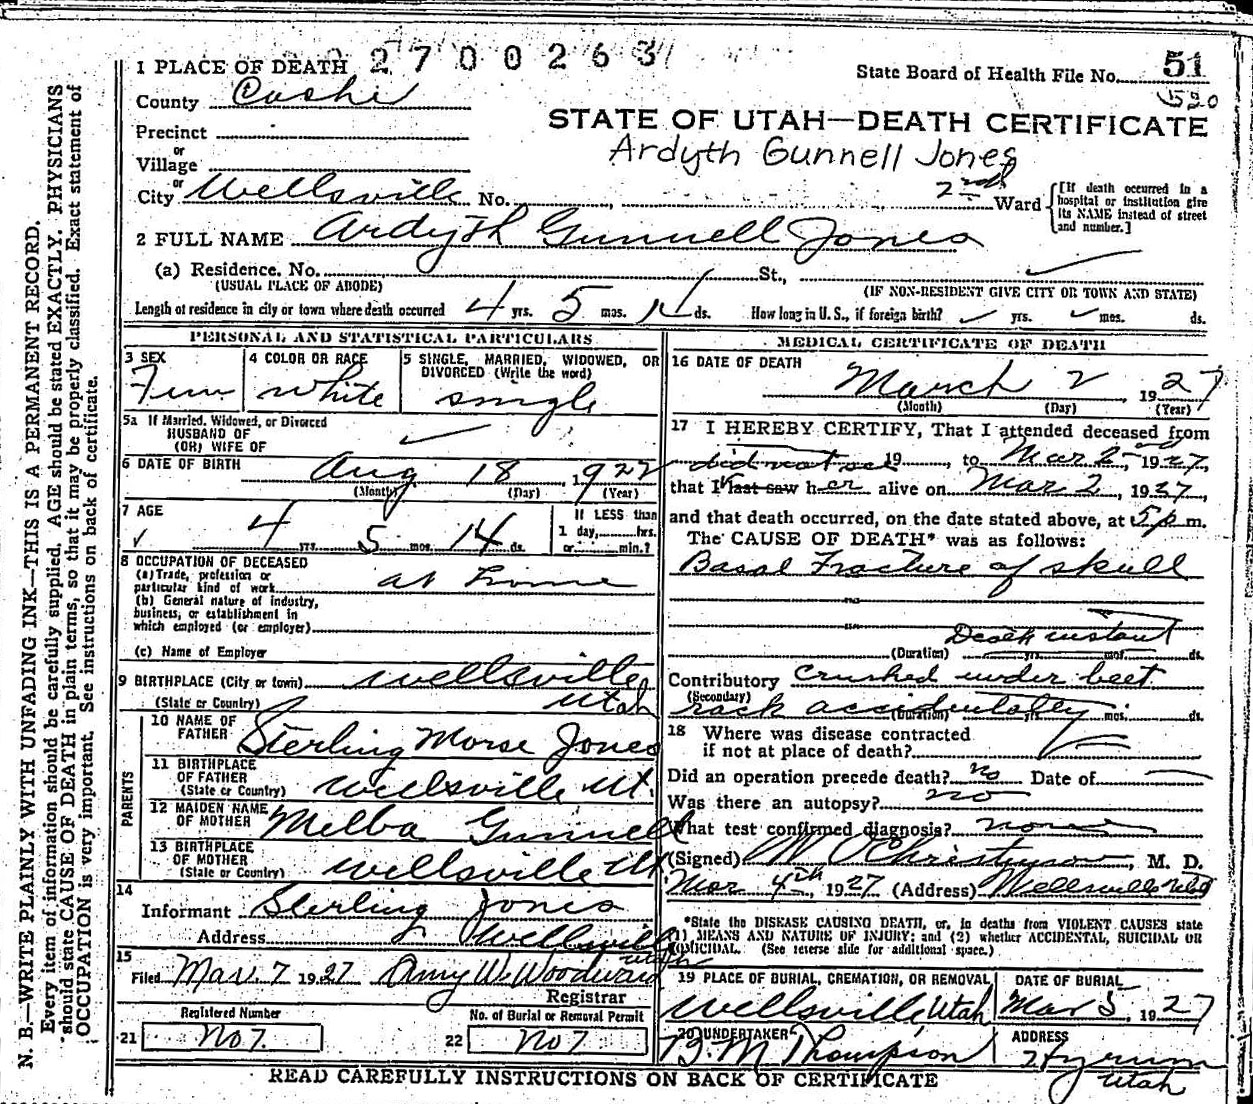 2700263
1 PLACE OF DEATH
State Board of Health File No. 51
520
County Cache
STATE OF UTAH—DEATH CERTIFICATE
Ardyth Gunnell Jones
Precinct
or
Village
or
City Wellsville No. , , 2nd Ward
[If death occurred in a hospital or institution give its NAME instead of street and number.]
2 FULL NAME Ardyth Gunnell Jones
(a) Residence. No. St.,
(USUAL PLACE OF ABODE) (IF NON-RESIDENT GIVE CITY OR TOWN AND STATE)
Length of residence in city or town where death occurred 4 yrs. 5 mos. 14 ds. How long in U. S., if foreign birth? yrs. mos. ds.
PERSONAL AND STATISTICAL PARTICULARS
3 SEX
Fem
4 COLOR OR RACE
white
5 SINGLE, MARRIED, WIDOWED, OR DIVORCED (Write the word)
single
5a If Married, Widowed, or Divorced
HUSBAND OF
(OR) WIFE OF
6 DATE OF BIRTH Aug 18, 1922
(Month) (Day) (Year)
7 AGE
4 yrs. 5 mos. 14 ds.
If LESS than
1 day, hrs.
or min.?
8 OCCUPATION OF DECEASED
(a) Trade, profession or
particular kind of work at home
(b) General nature of industry,
business, or establishment in
which employed (or employer)
(c) Name of Employer
9 BIRTHPLACE (City or town) Wellsville
(State or Country) Utah
PARENTS
10 NAME OF FATHER Sterling Morse Jones
11 BIRTHPLACE OF FATHER
(State or Country) Wellsville Ut.
12 MAIDEN NAME OF MOTHER Melba Gunnell
13 BIRTHPLACE OF MOTHER
(State or Country) Wellsville Ut
14
Informant Sterling Jones
Address Wellsville Utah
15
Filed Mar. 7 1927 Amy W. Woodward
Registrar
Registered Number No. of Burial or Removal Permit
21 No 7. 22 No 7
MEDICAL CERTIFICATE OF DEATH
16 DATE OF DEATH
March 2 1927
(Month) (Day) (Year)
17 I HEREBY CERTIFY, That I attended deceased from
did not see 19, to Mar 2nd, 1927,
that I last saw her alive on Mar 2, 1927,
and that death occurred, on the date stated above, at 5 p m.
The CAUSE OF DEATH* was as follows:
Basal Fracture of skull
Death instant
(Duration) yrs. mos. ds.
Contributory Crushed under beet
(Secondary) rack accidentally
(Duration) yrs. mos. ds.
18 Where was disease contracted
if not at place of death?
Did an operation precede death? no Date of
Was there an autopsy? no
What test confirmed diagnosis? none
(Signed) , M. D.
Mar 4th, 1927 (Address) Wellsville Utah
*State the DISEASE CAUSING DEATH, or, in deaths from VIOLENT CAUSES state
(1) MEANS AND NATURE OF INJURY; and (2) whether ACCIDENTAL, SUICIDAL OR
HOMICIDAL. (See reverse side for additional space.)
19 PLACE OF BURIAL, CREMATION, OR REMOVAL
Wellsville Utah
DATE OF BURIAL
Mar 5, 1927
20 UNDERTAKER
B. M Thompson
ADDRESS
Hyrum
Utah
READ CAREFULLY INSTRUCTIONS ON BACK OF CERTIFICATE
N. B.—WRITE PLAINLY WITH UNFADING INK—THIS IS A PERMANENT RECORD.
Every item of information should be carefully supplied. AGE should be stated EXACTLY. PHYSICIANS
should state CAUSE OF DEATH in plain terms, so that it may be properly classified. Exact statement of
OCCUPATION is very important. See instructions on back of certificate.